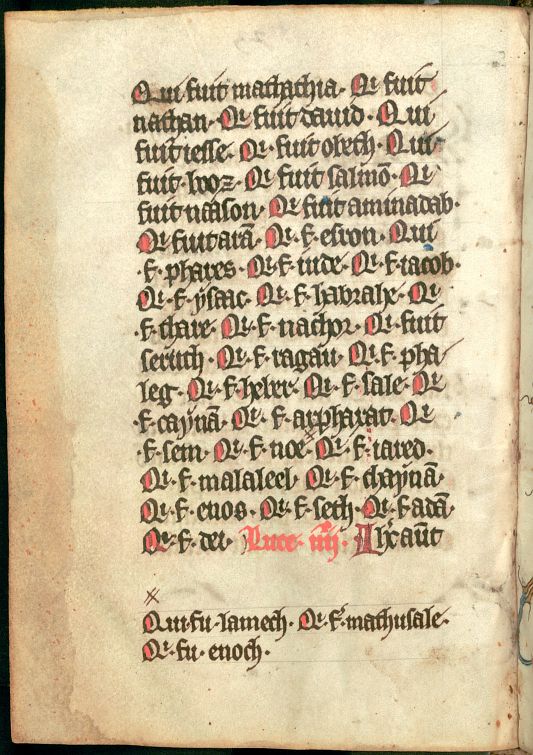 Qui fuit mathathia · Qi fuit
nathan · Qi fuit dauid · Qui
fuit iesse · Qi · fuit obeth · Qui
fuit · booz · Qi fuit salmō · Qi
fuit naason · Qi fuit aminadab ·
Qi fuit arā · Qi · f · esron · Qui
· f · phares · Qi · f · iude · Qi · f · iacob ·
Qi · f · ysaac · Qi · f · habrahe · Qi
· f · thare · Qi · f · nachor · Qi · fuit
seruch · Qi · f · ragau · Qi · f · pha/
leg · Qi · f · heber · Qi · f · sale · Qi
· f · caynā · Qi · f · arphaxat · Qi
· f · sem · Qi · f · noe · Qi · f · iared ·
Qi · f · malaleel · Qi · f · chaynā ·
Qi · f · enos · Qi · f · seth · Qi · f · adā ·
Qi · f · dei · Luce · iiij · Ihc aūt
Qui · fu · lamech · Qi · f · mathusale ·
Qi · fu · enoch ·